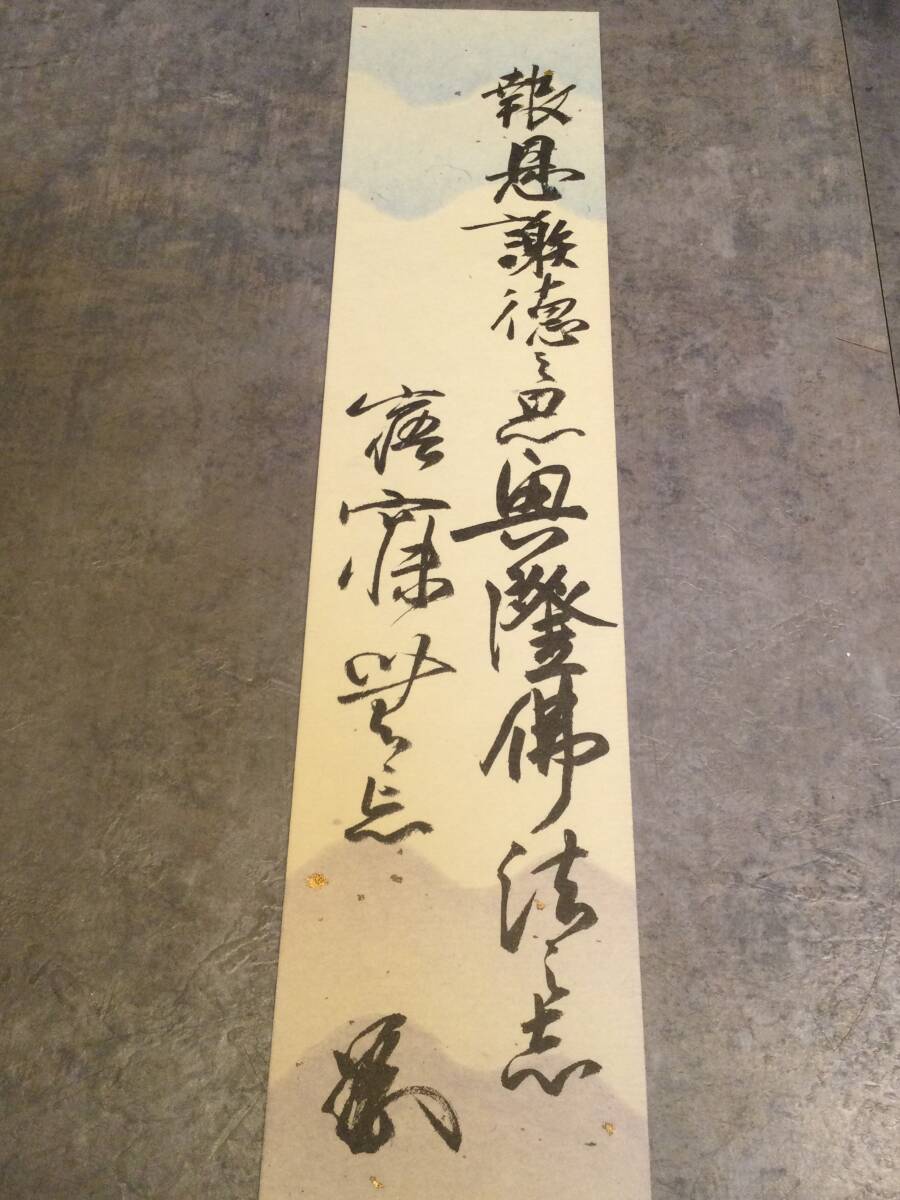 報恩謝德之思興隆佛法之志
寤寐無忘